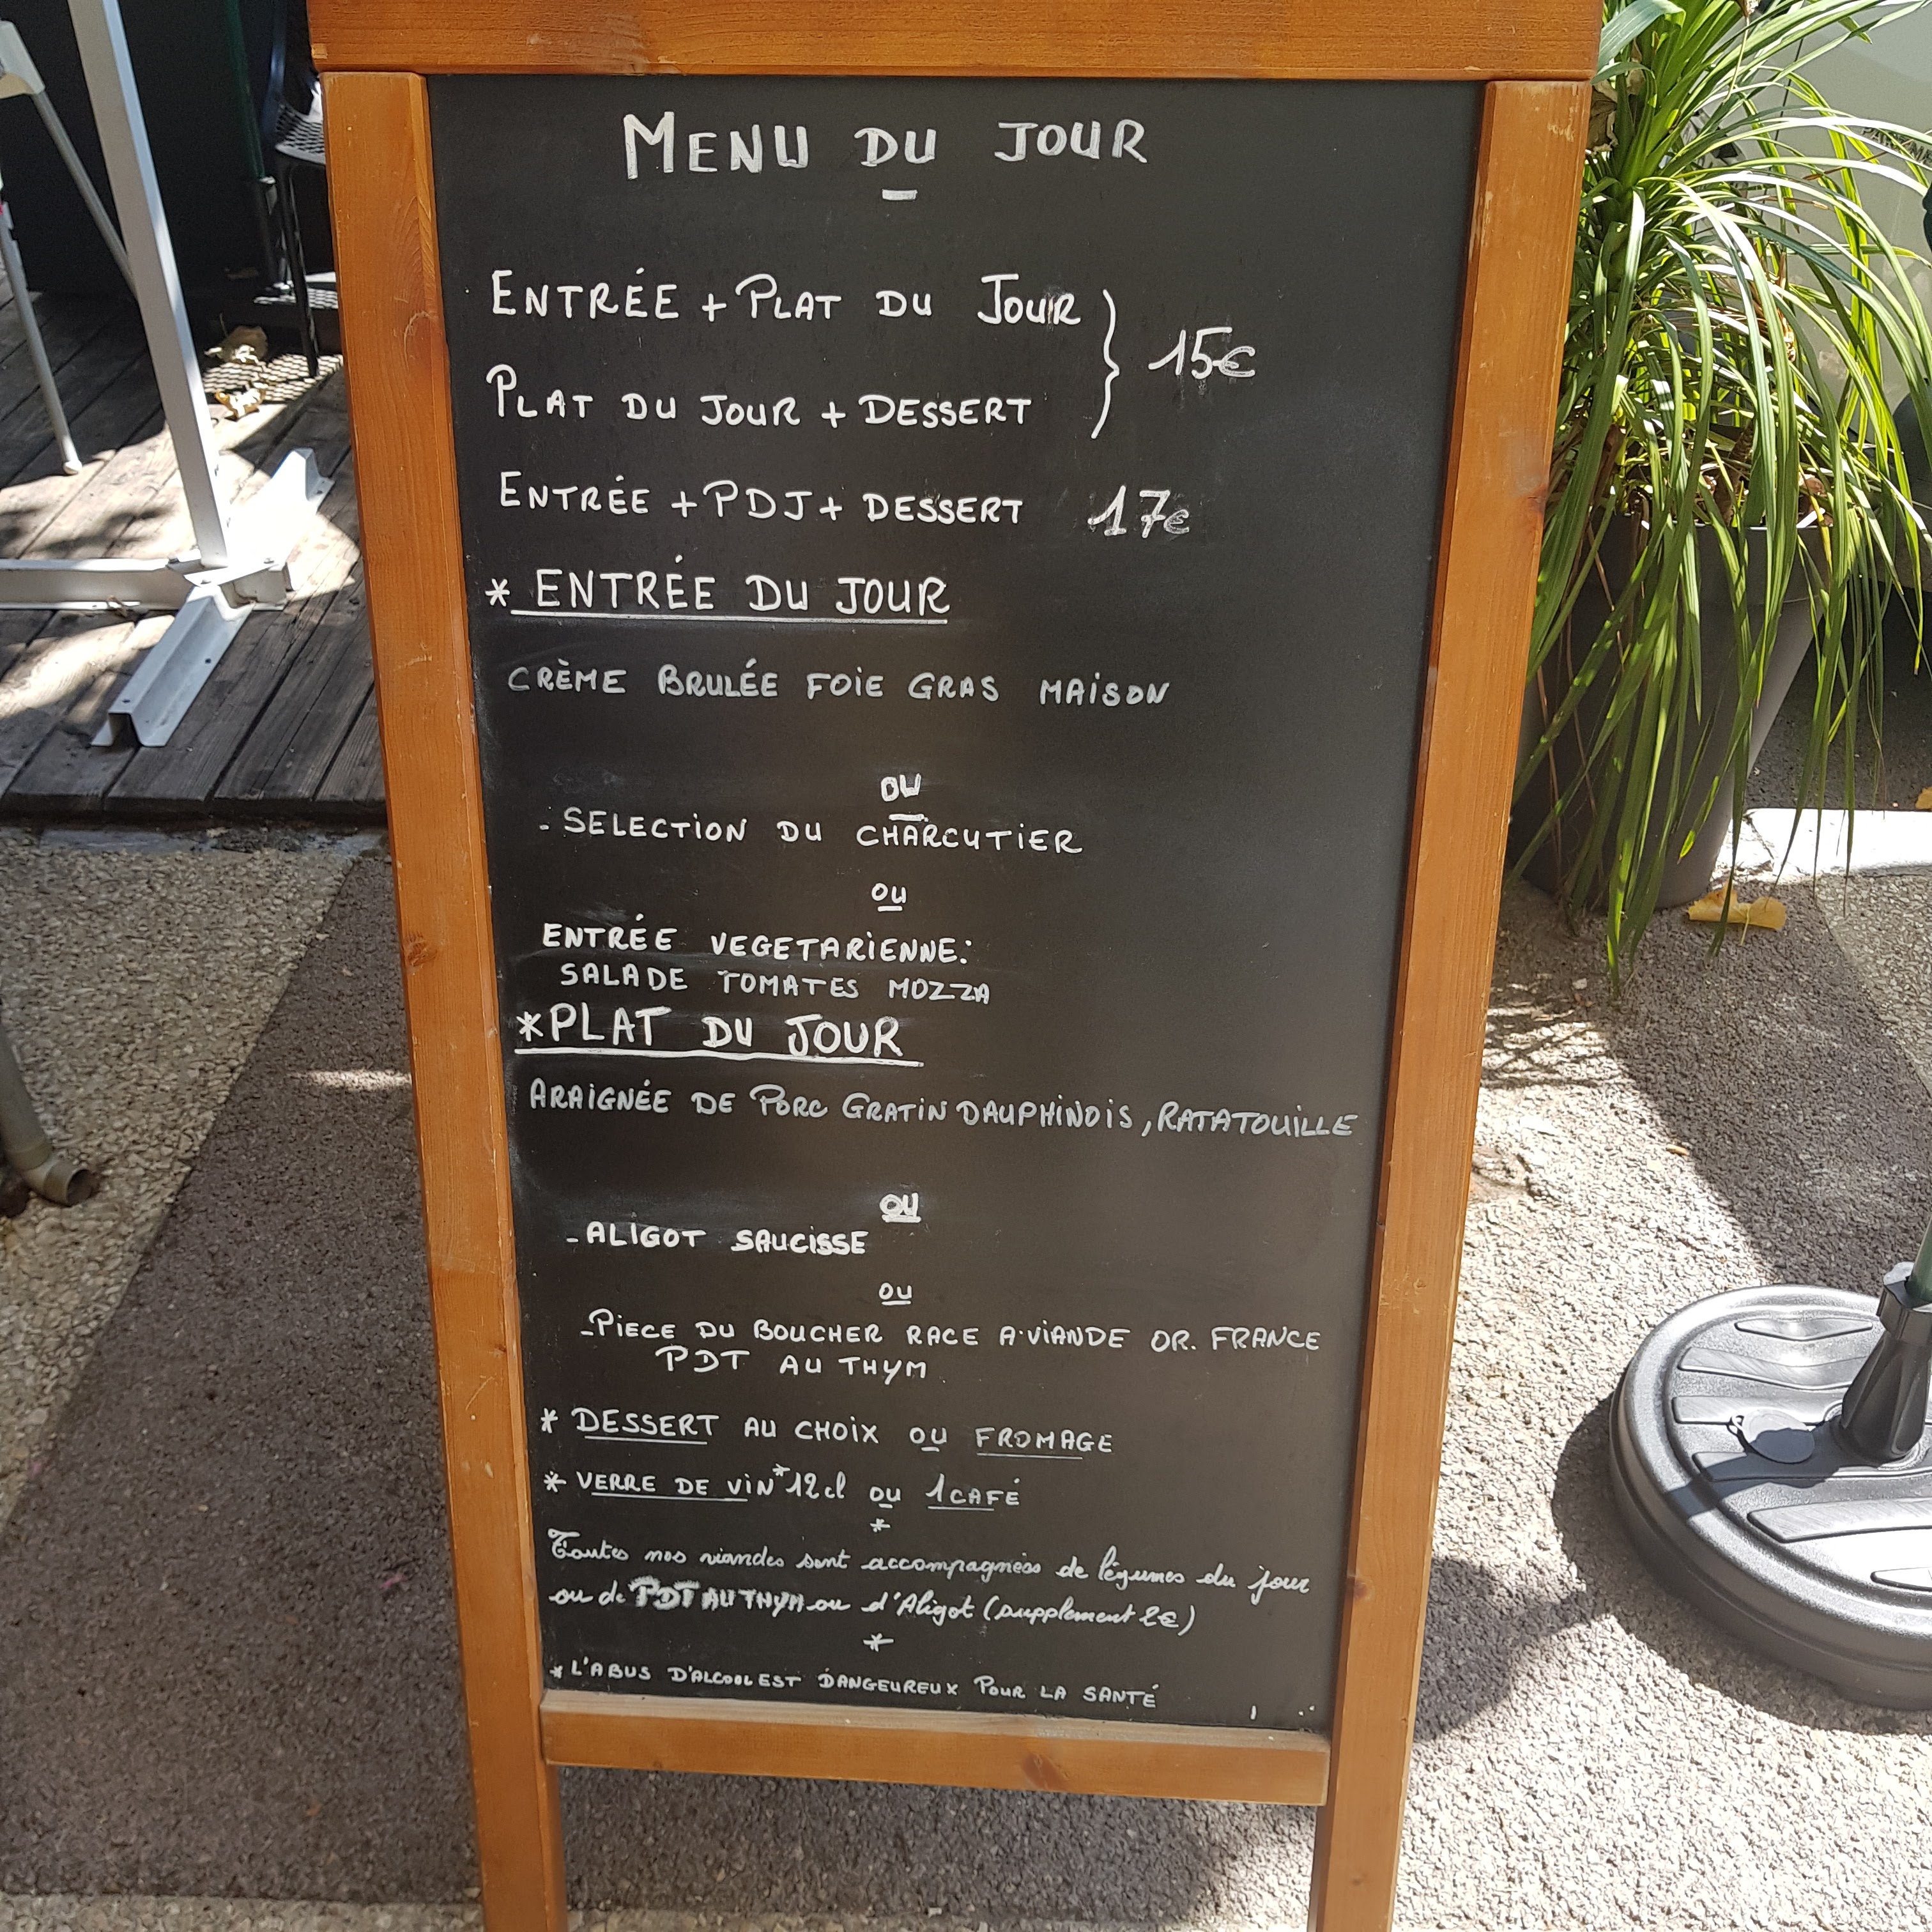 MENU DU JOUR
ENTRÉE + PLAT DU JOUR
15€
PLAT DU JOUR + DESSERT
ENTRÉE + PDJ + DESSERT 17€
* ENTRÉE DU JOUR
CRÈME BRULÉE FOIE GRAS MAISON
OU
- SELECTION DU CHARCUTIER
OU
ENTRÉE VEGETARIENNE:
SALADE TOMATES MOZZA
*PLAT DU JOUR
ARAIGNÉE DE PORC GRATIN DAUPHINOIS, RATATOUILLE
OU
- ALIGOT SAUCISSE
OU
- PIECE DU BOUCHER RACE A.VIANDE OR. FRANCE
PDT AU THYM
* DESSERT AU CHOIX OU FROMAGE
* VERRE DE VIN* 12cl OU 1 CAFÉ
*
Toutes nos viandes sont accompagnées de légumes du jour
ou de PDT AU THYM ou d'Aligot (supplement 2€)
*
* L'ABUS D'ALCOOL EST DANGEUREUX POUR LA SANTÉ